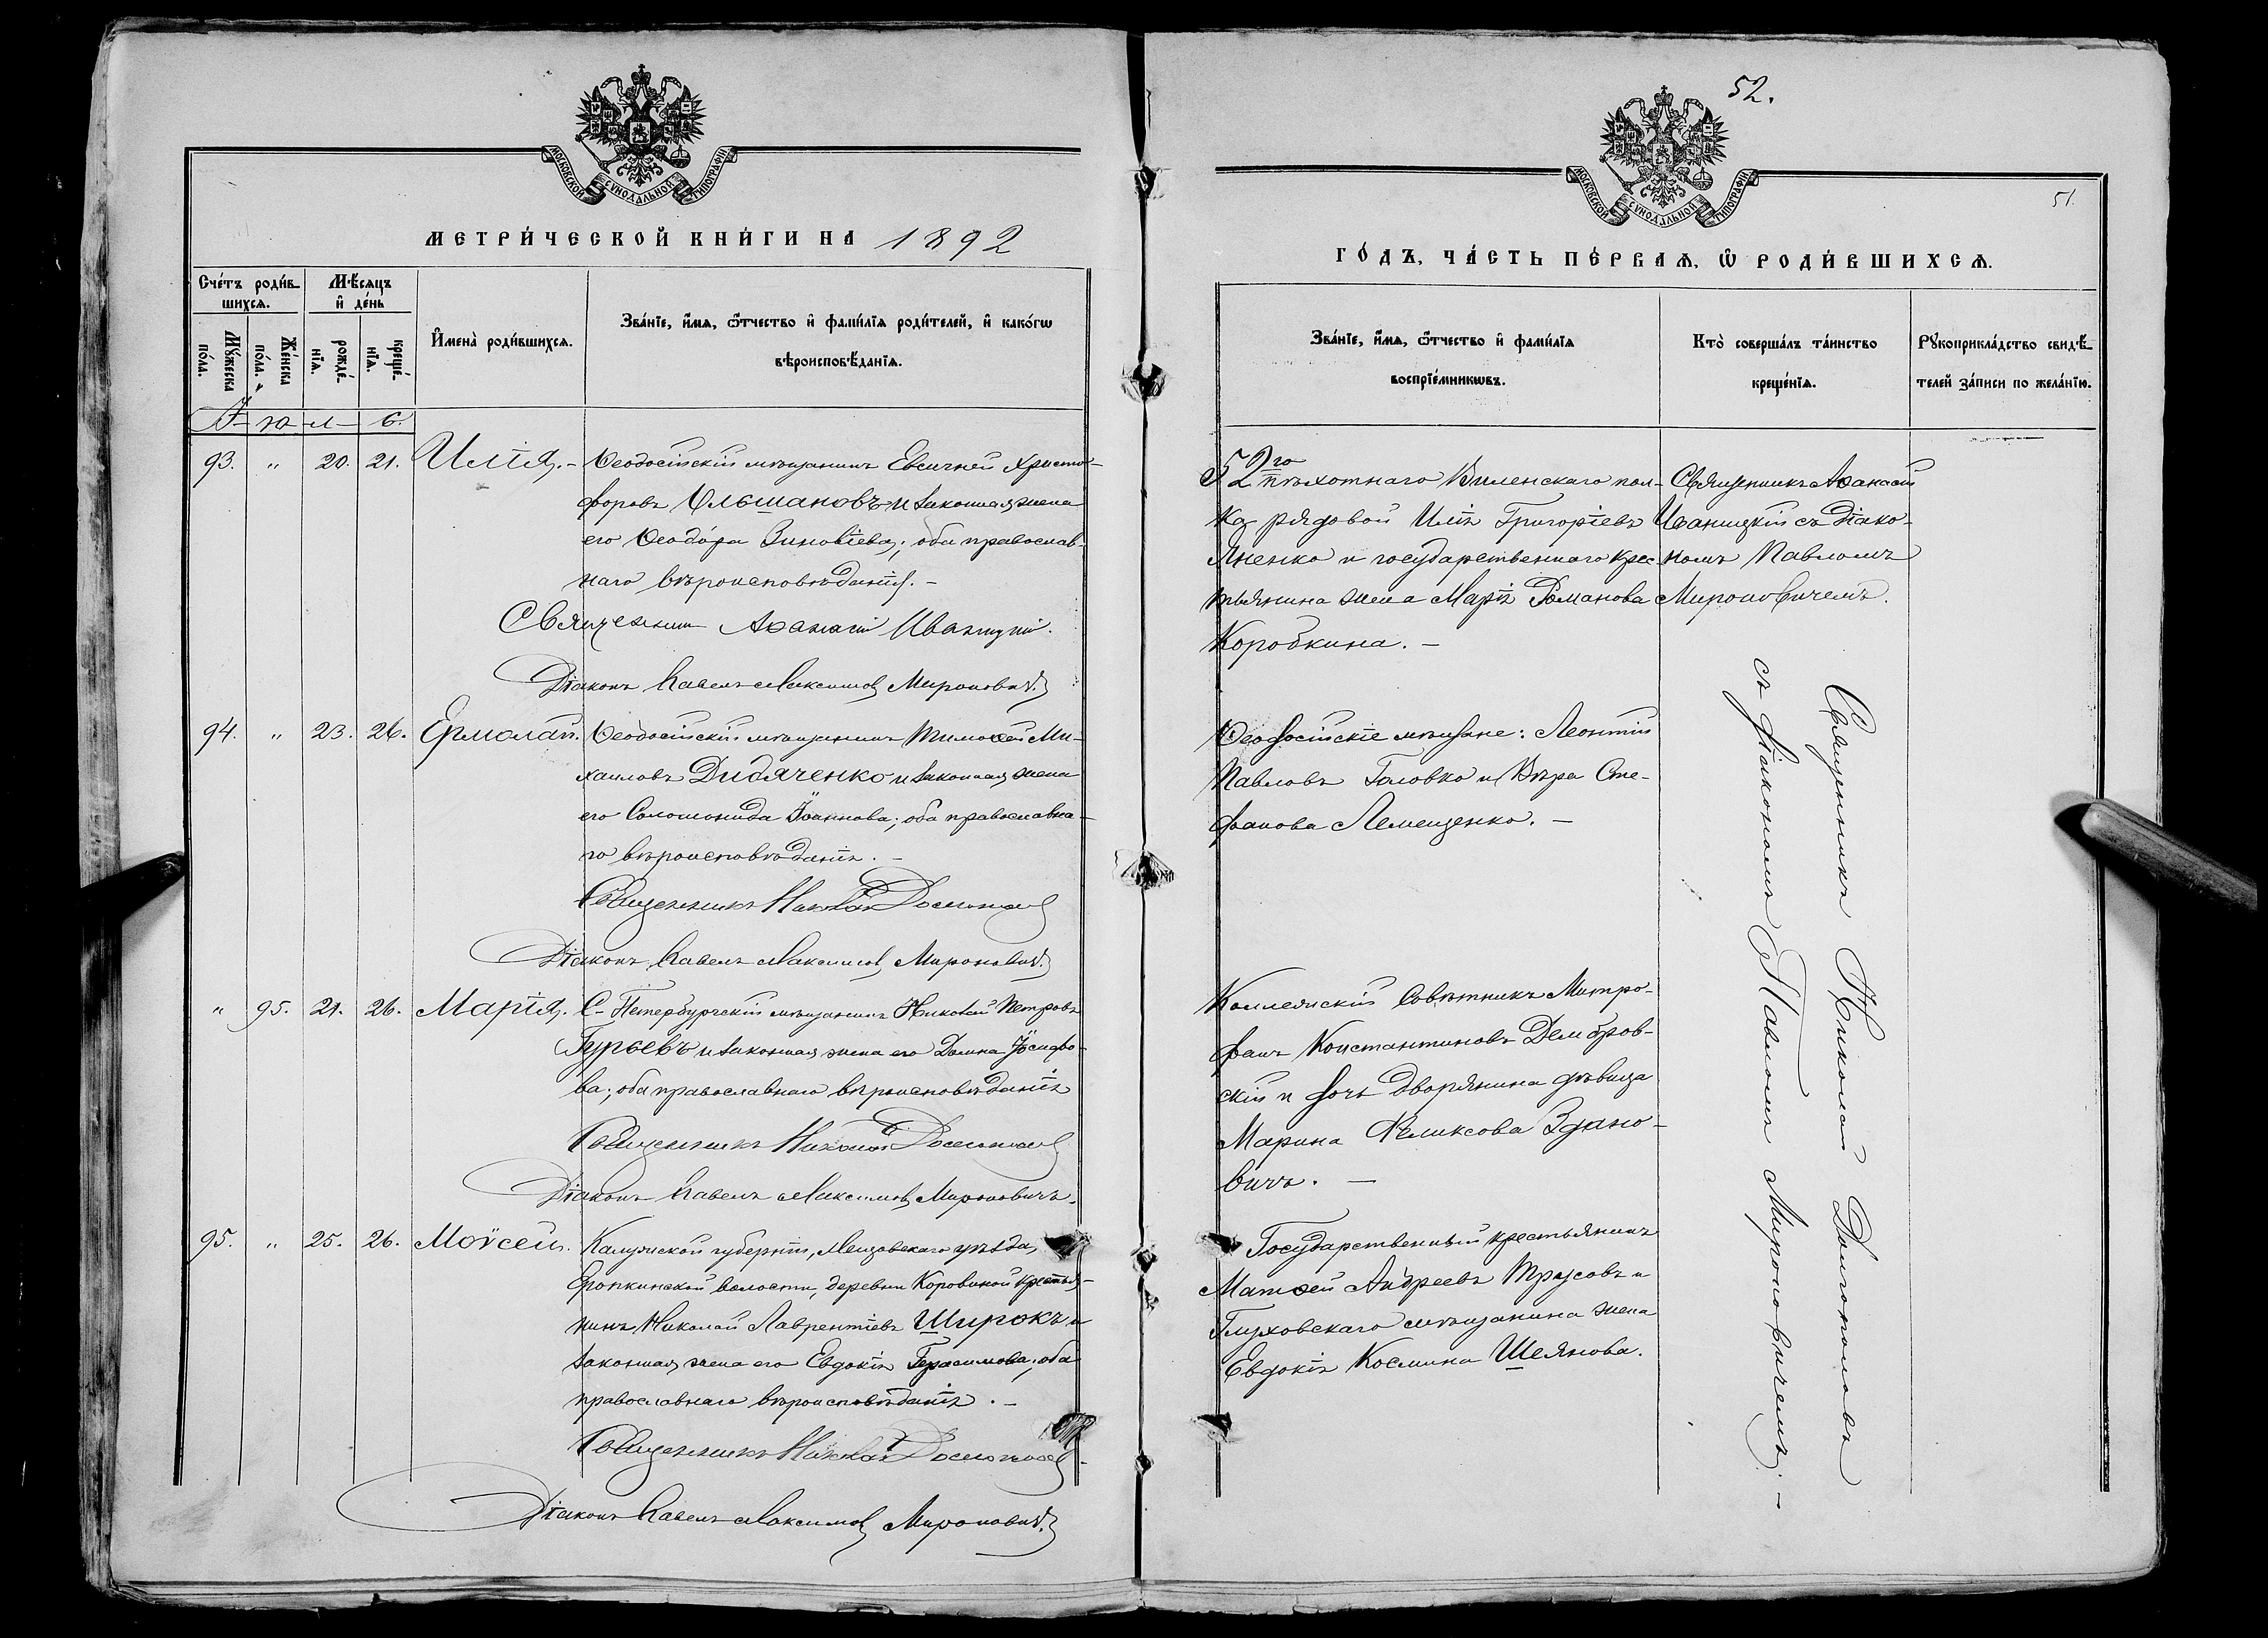 МОСКОВСКОЙ СѴНОДАЛЬНОЙ ТИПОГРАФІИ
МЕТРИ́ЧЕСКОЙ КНИ́ГИ НА 1892
Сче́тъ роди́в-
шихсѧ.
Мѣ́сѧцъ
и҆ де́нь
Мꙋ́жеска
по́ла.
Же́нска
по́ла.
рожде́-
нїѧ.
креще́-
нїѧ.
И҆мена̀ роди́вшихсѧ.
Зва́нїе, и҆́мѧ, ѻ҆́тчество и҆ фами́лїѧ роди́телей, и҆ како́гѡ
вѣроисповѣ́данїѧ.
І- ю- л- ь.
93. " 20. 21. Илія. - Ѳеодосійскій мѣщанинъ Евсигней Христо-
форовъ Ольшановъ и законная жена
его Ѳеодора Зиновіева; оба православ-
наго вѣроисповѣданія. -
Священник Аѳанасій Иваницкій.
Діаконъ Павелъ Максимов Мироновичъ.
94. " 23. 26. Ермолай. Ѳеодосійскій мѣщанинъ Тимоѳей Ми-
хаиловъ Дидяченко и законная жена
его Соломонида Іоаннова; оба православна-
го вѣроисповѣданія. -
Священникъ Николай Долгополовъ
Діаконъ Павелъ Максимов Мироновичъ.
" 95. 21. 26. Марія. С-Петербургскій мѣщанинъ Николай Петровъ
Гурьевъ и законная жена его Домна Іосифо-
ва; оба православнаго вѣроисповѣданія
Священникъ Николай Долгополовъ
Діаконъ Павелъ Максимов Мироновичъ.
95. " 25. 26. Моѵсей. Калужской губерніи, Мещовскаго уѣзда,
Еропкинской волости, деревни Коровиной крестья-
нинъ Николай Лаврентіевъ Широкъ и
законная жена его Евдокія Герасимова; оба
православнаго вѣроисповѣданія. -
Священникъ Николай Долгополовъ
Діаконъ Павелъ Максимов Мироновичъ.
52.
МОСКОВСКОЙ СѴНОДАЛЬНОЙ ТИПОГРАФІИ
51.
ГО́ДЪ, ЧА́СТЬ ПЕ́РВАѦ, Ѡ҆ РОДИ́ВШИХСѦ.
Зва́нїе, и҆́мѧ, ѻ҆́тчество и҆ фами́лїѧ
воспрїе́мникѡвъ.
Кто̀ соверша́лъ та́инство
креще́нїѧ.
Рꙋкоприкла́дство свидѣ́-
телей за́писи по жела́нїю.
52го пѣхотнаго Виленскаго пол-
ка рядовой Илія Григоріевъ
Яненко и государственнаго крес-
тьянина жена Марія Романова
Коробкина. -
Священникъ Аѳанасій
Иваницкій съ Діако-
номъ Павломъ
Мироновичемъ.
Ѳеодосійскіе мѣщане: Леонтій
Павловъ Головко и Вѣра Сте-
фанова Лемещенко. -
Коллежскій Совѣтникъ Митро-
фанъ Константиновъ Демьбров-
скій и дочь дворянина дѣвица
Марина Феликсова Здано-
вичъ. -
Государственный крестьянинъ
Матѳей Андреевъ Трусовъ и
Глуховскаго мѣщанина жена
Евдокія Космина Шеянова.
Священникъ Николай Долгополовъ
съ діакономъ Павломъ Мироновичемъ. -